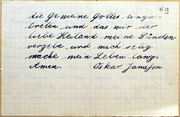 69
die gemeine Gottes anzu-
treten und das mir der
liebe Heiland meine Sünden
vergebe und mich selig
mache mein Leben lang.
Amen. Oskar Jansson